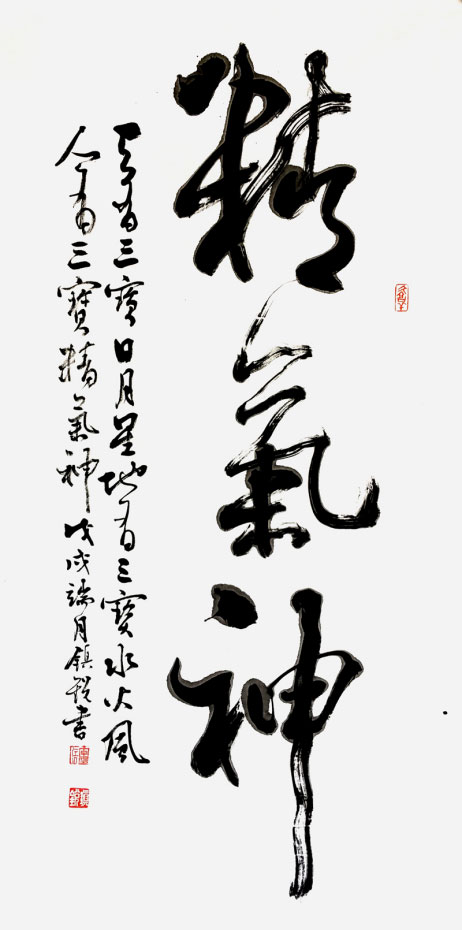 精氣神
天有三寶日月星地有三寶水火風
人有三寶精氣神戊戌端月鎮銳書